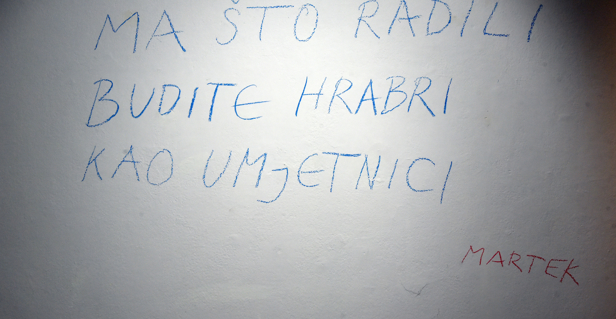 MA ŠTO RADILI
BUDITE HRABRI
KAO UMJETNICI
MARTEK